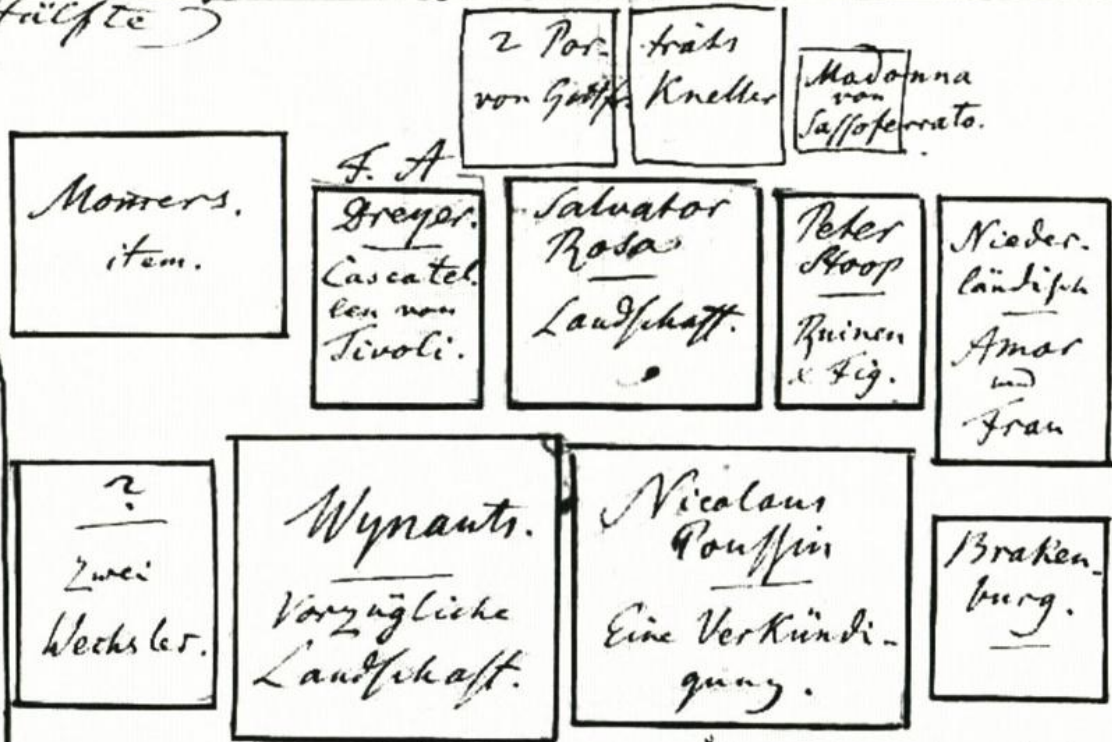 Hälfte)
2 Por- träts
von Gottfr. Kneller
Madonna
von
Sassoferrato.
Momers.
item.
F. A
Dreyer.
Cascatel-
len von
Tivoli.
Salvator
Rosa
Landschaft.
Peter
Stoop
Ruinen
& Fig.
Nieder-
ländisch
Amor
und
Frau
?
Zwei
Wechsler.
Wynants.
Vorzügliche
Landschaft.
Nicolaus
Poussin
Eine Verkündi-
gung.
Braken-
burg.